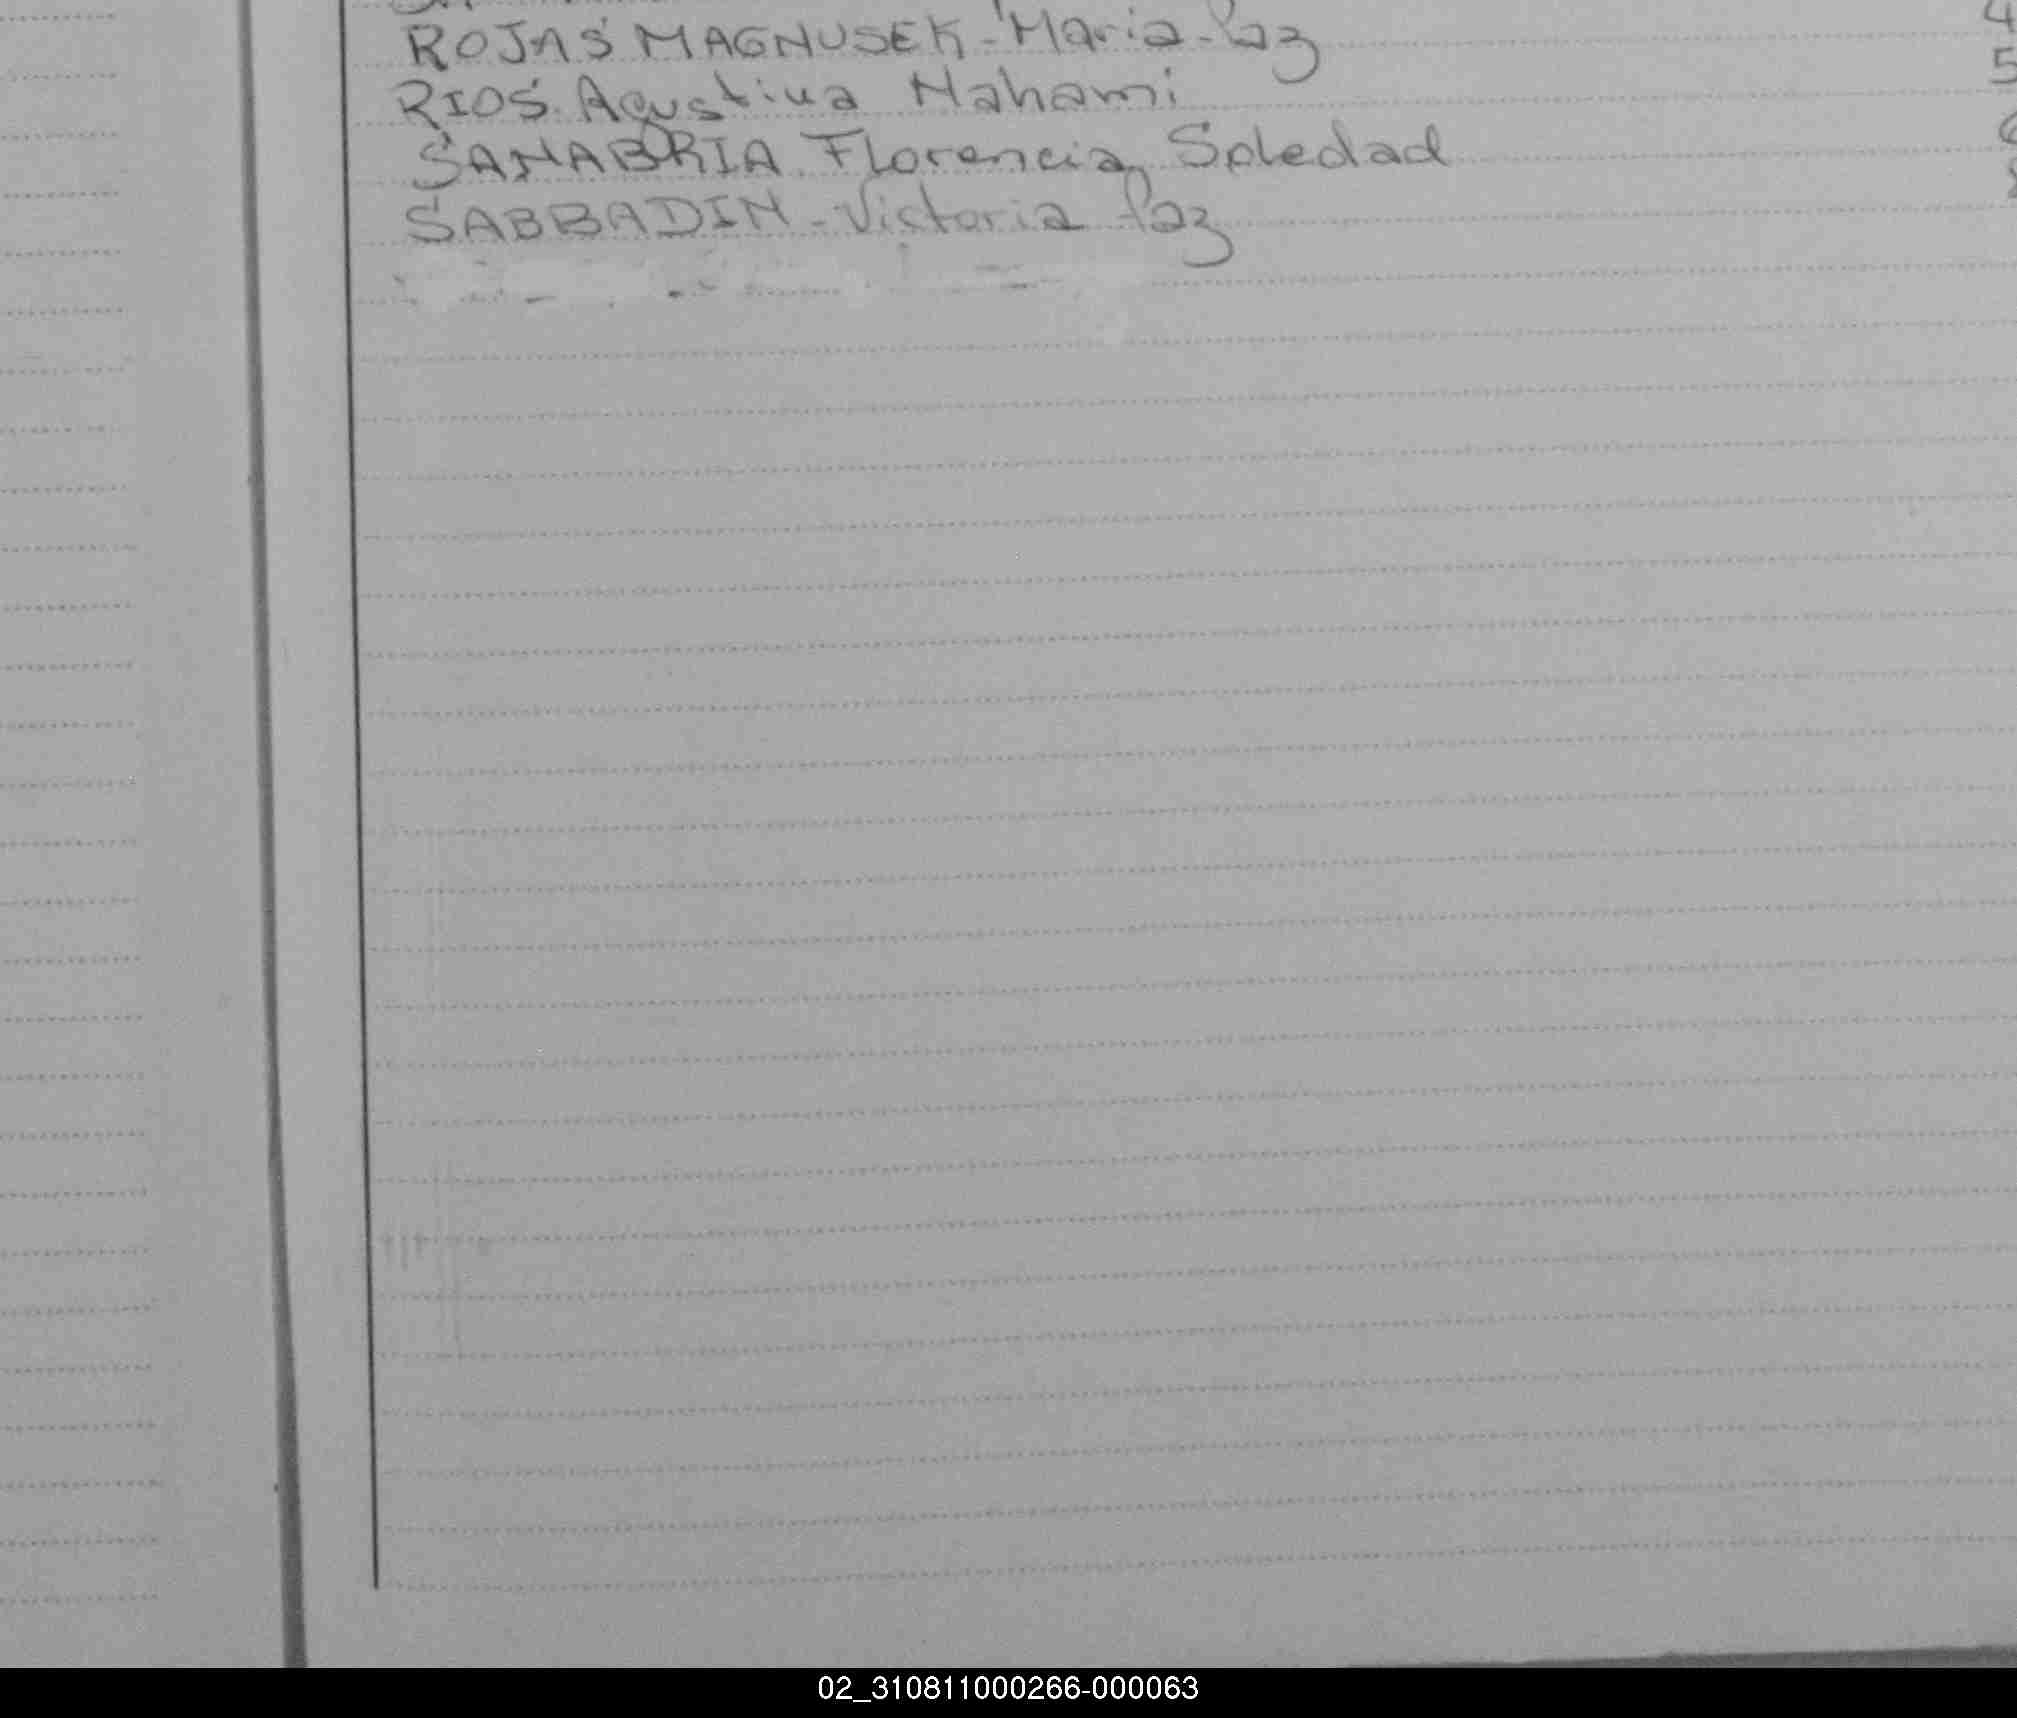 ROJAS MAGNUSEK - Maria - Paz 4
RIOS. Agustina Nahami 5
SANABRIA. Florencia Soledad
SABBADIN - Victoria Paz
02_310811000266-000063